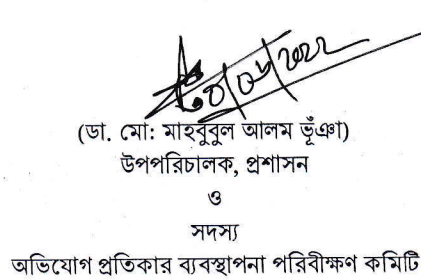 (ডা. মো: মাহবুবুল আলম ভূঁঞা)
উপপরিচালক, প্রশাসন
ও
সদস্য
অভিযোগ প্রতিকার ব্যবস্থাপনা পরিবীক্ষণ কমিটি